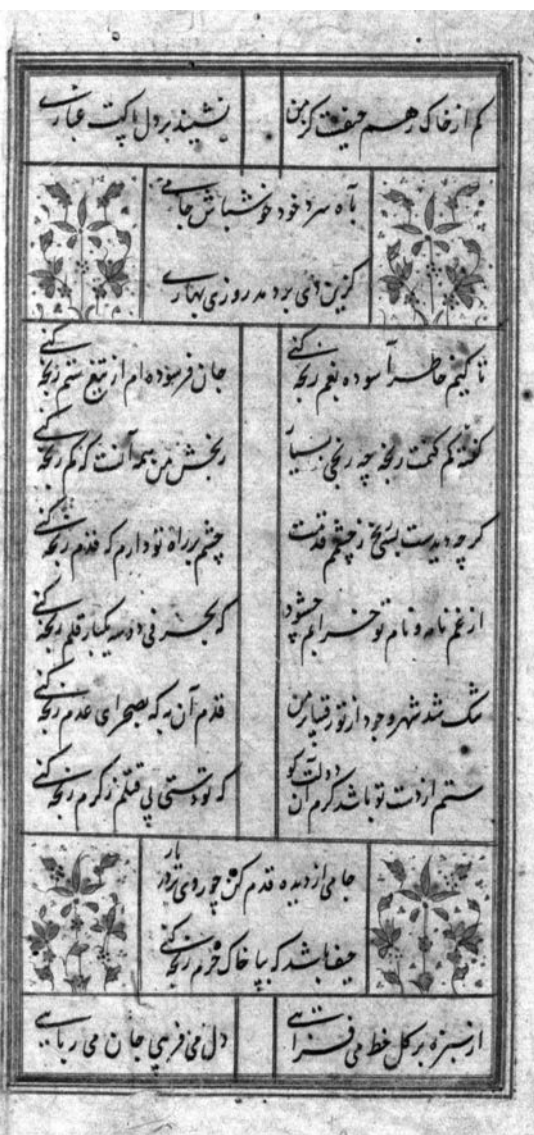 کم از خاک رهم حیفست کز من
نشیند بر دل پاکت غباری
بآه سرد خود خوش باش جامی
کزین دی بر دمد روزی بهاری
تا کیم خاطر آسوده بغم رنجه کنی
جان فرسوده ام از تیغ ستم رنجه کنی
گفته کم کنمت رنجه چه رنجی بسیار
رنجش من همه آنست که کم رنجه کنی
گر چه دیدست بسی رنج ز چشمم قدمت
چشم بر راه تو دارم که قدم رنجه کنی
از غم نامه و نام تو خرابم چه شود
که بحرفی دو سه یکبار قلم رنجه کنی
تنگ شد شهر وجود از تو رقیبا بر من
قدم آن به که بصحرای عدم رنجه کنی
ستم از دست تو باشد کرم آن دولت کو
که تو دستی پی قتلم ز کرم رنجه کنی
جامی از دیده قدم کن چو روی بر در یار
حیف باشد که بپا خاک حرم رنجه کنی
از سبزه بر گل خط می فزایی
دل می فریبی جان می ربایی